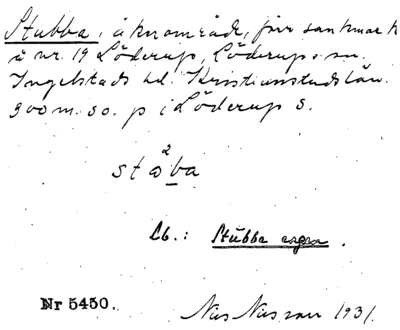 Stubba, åkerområde, förr sankmark
å nr. 19 Löderup, Löderups sn.
Ingelstads hd. Kristianstads län.
900 m. so. p i Löderup s.
2
støba
Lb.: Stubba
Nr 5450. Nils Nilsson 1931.